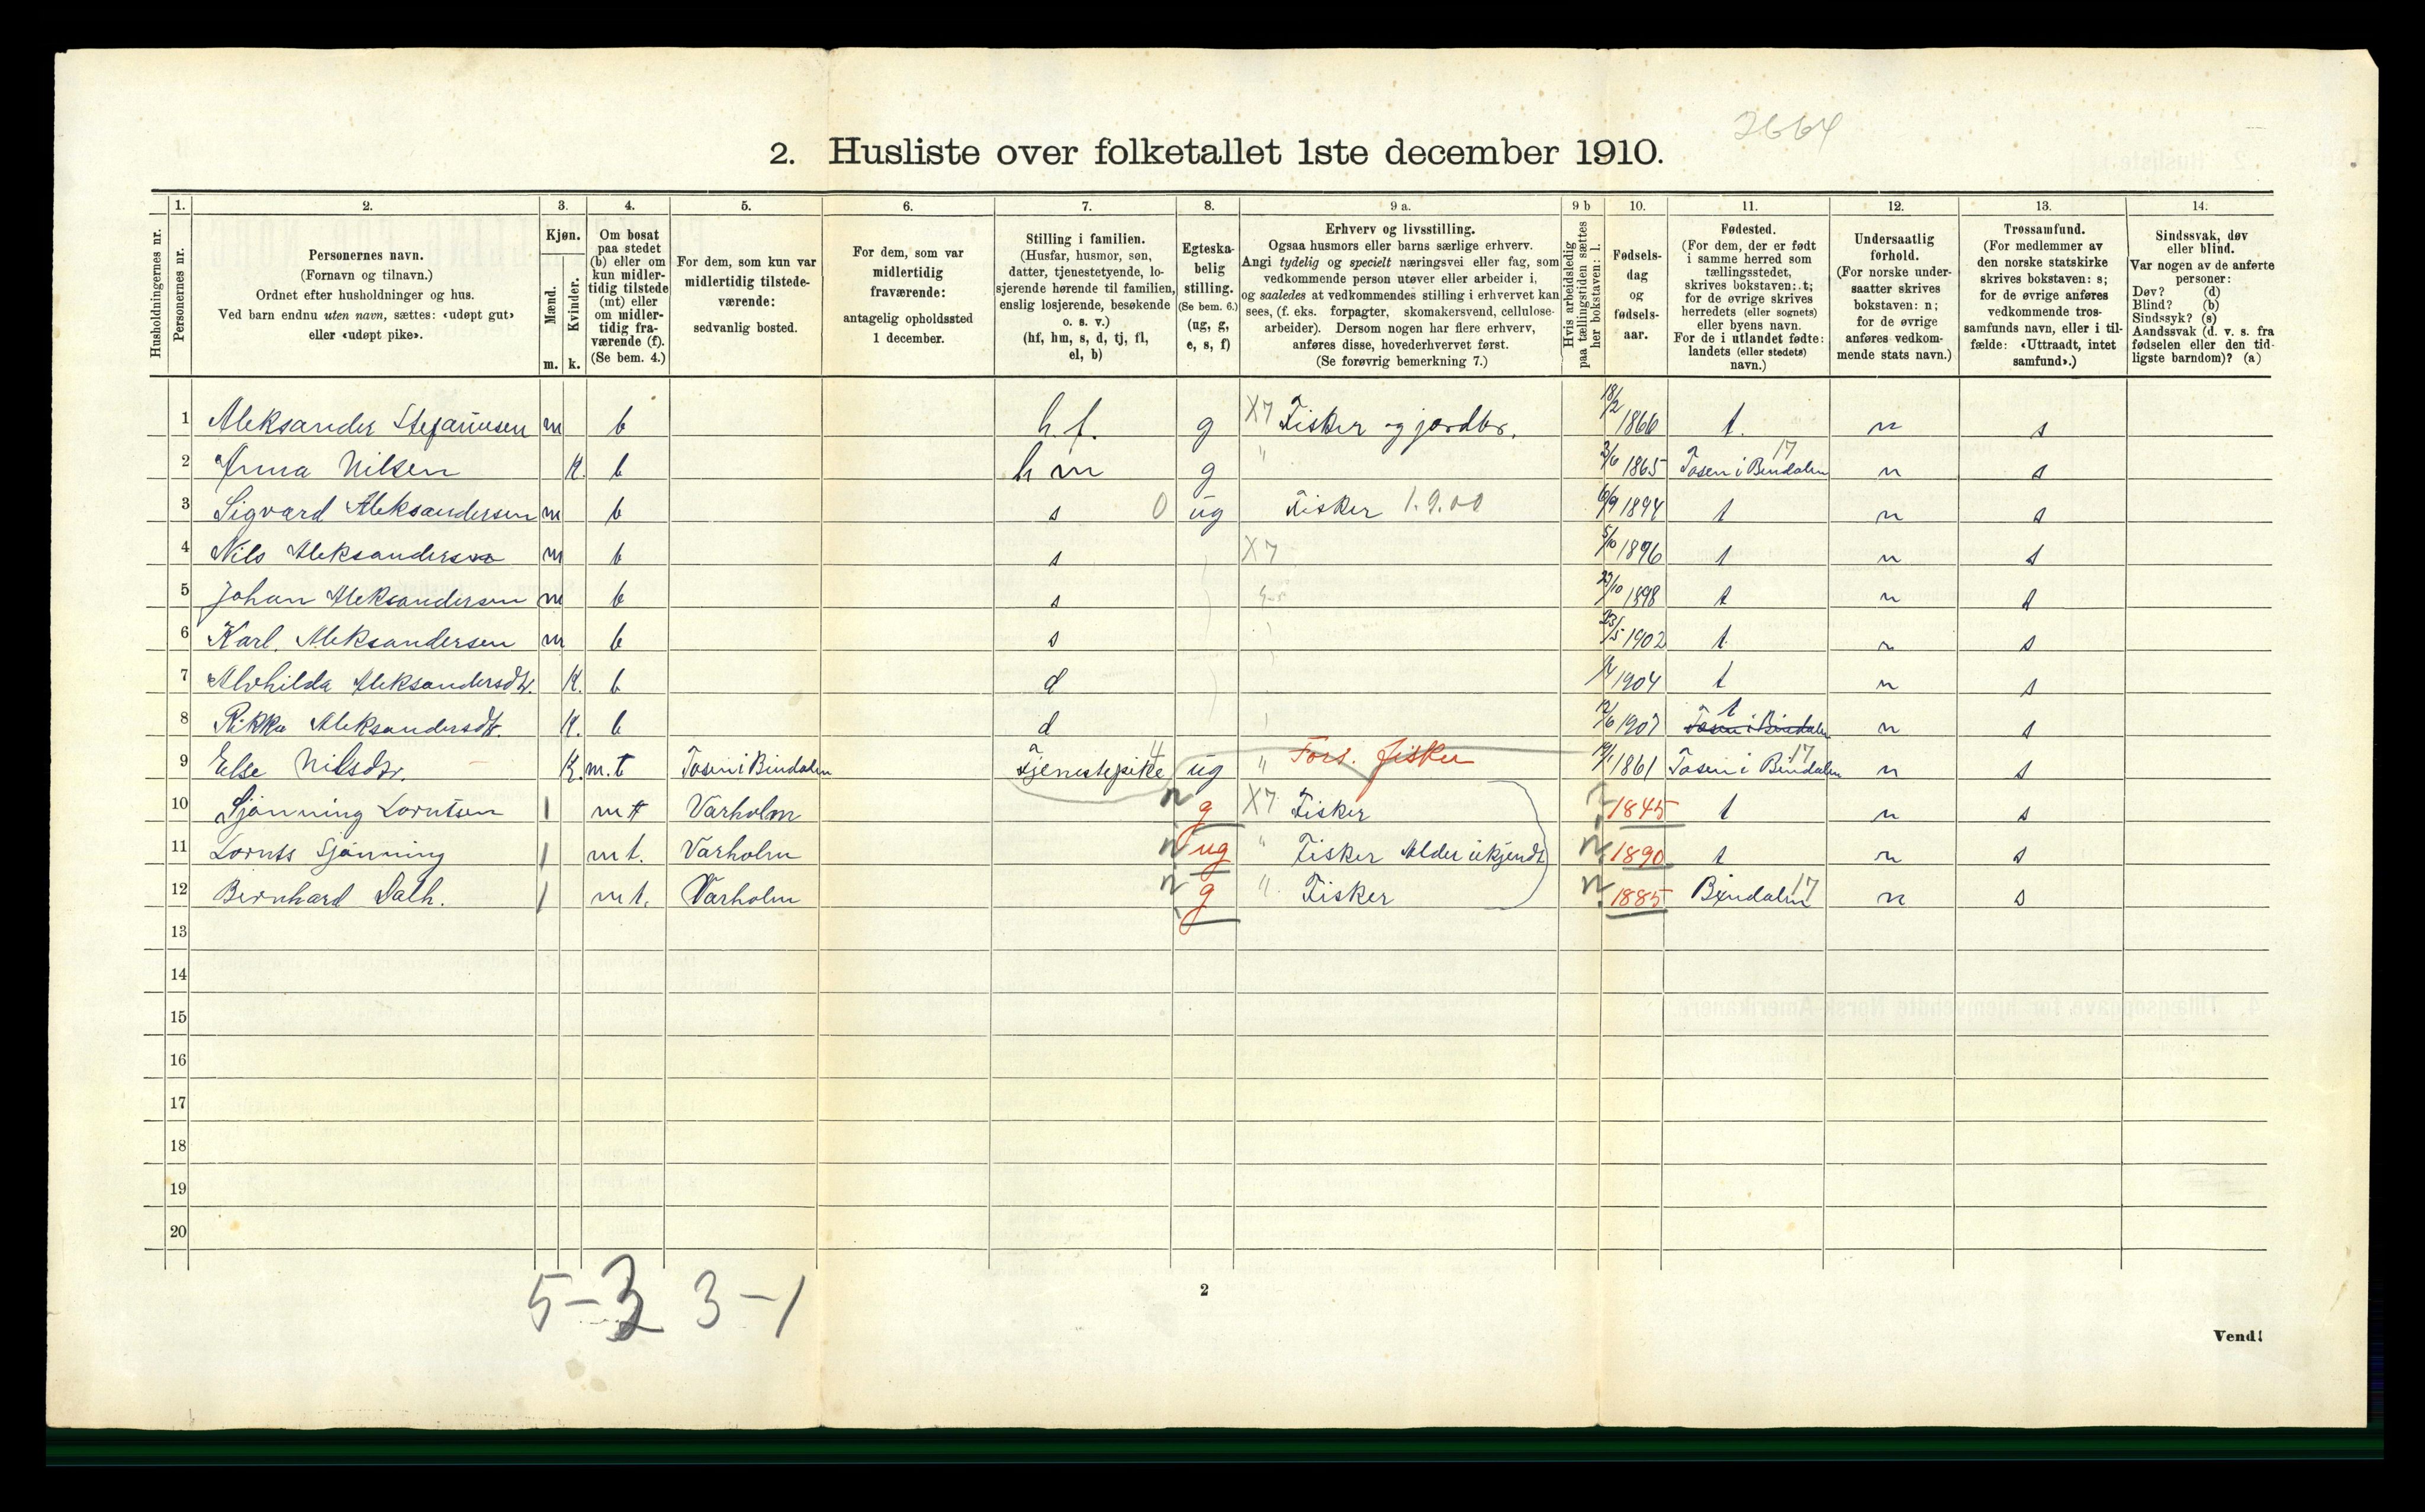 2664
2. Husliste over folketallet 1ste december 1910.
Husholdningernes nr.
1. Personernes nr.
2. Personernes navn. (Fornavn og tilnavn.) Ordnet efter husholdninger og hus. Ved barn endnu uten navn, sættes: «udøpt gut» eller «udøpt pike».
3. Kjøn. Mænd. m. Kvinder. k.
4. Om bosat paa stedet (b) eller om kun midlertidig tilstede (mt) eller om midlertidig fraværende (f). (Se bem. 4.)
5. For dem, som kun var midlertidig tilstedeværende: sedvanlig bosted.
6. For dem, som var midlertidig fraværende: antagelig opholdssted 1 december.
7. Stilling i familien. (Husfar, husmor, søn, datter, tjenestetyende, losjerende hørende til familien, enslig losjerende, besøkende o. s. v.) (hf, hm, s, d, tj, fl, el, b)
8. Egteskabelig stilling. (Se bem. 6.) (ug, g, e, s, f)
9 a. Erhverv og livsstilling. Ogsaa husmors eller barns særlige erhverv. Angi tydelig og specielt næringsvei eller fag, som vedkommende person utøver eller arbeider i, og saaledes at vedkommendes stilling i erhvervet kan sees, (f. eks. forpagter, skomakersvend, cellulosearbeider). Dersom nogen har flere erhverv, anføres disse, hovederhvervet først. (Se forøvrig bemerkning 7.)
9 b Hvis arbeidsledig paa tællingstiden sættes her bokstaven: l.
10. Fødselsdag og fødselsaar.
11. Fødested. (For dem, der er født i samme herred som tællingsstedet, skrives bokstaven: t; for de øvrige skrives herredets (eller sognets) eller byens navn. For de i utlandet fødte: landets (eller stedets) navn.)
12. Undersaatlig forhold. (For norske undersaatter skrives bokstaven: n; for de øvrige anføres vedkommende stats navn.)
13. Trossamfund. (For medlemmer av den norske statskirke skrives bokstaven: s; for de øvrige anføres vedkommende trossamfunds navn, eller i tilfælde: «Uttraadt, intet samfund».)
14. Sindssvak, døv eller blind. Var nogen av de anførte personer: Døv? (d) Blind? (b) Sindssyk? (s) Aandssvak (d. v. s. fra fødselen eller den tidligste barndom)? (a)
1 Aleksander Stefanussen m b h.f. g X7 Fisker og jordbr. 18/2 1866 t. n s
2 Anna Nilsen K. b hm g " 3/6 1865 Tosen i Bendalen 17 n s
3 Sigvard Aleksandersen m b s 0 ug Fisker 1.9.00 6/9 1894 t n s
4 Nils Aleksandersen m b s X7 5/10 1896 t n s
5 Johan Aleksandersen m b s 23/10 1898 t n s
6 Karl. Aleksandersen m b s 23/5 1902 t. n s
7 Alvhilda Aleksandersdtr. K. b d 1904 t n s
8 Rikka Aleksandersdtr. K. b d 12/6 1907 t Tosen i Bindalen n s
9 Else Nilsdtr. K. m.t Tosen i Bindalen Tjenestepike 4 ug " Fors. fisker 19/1 1861 Tosen i Bindalen 17 n s
10 Sjønning Lorntsen 1 mt Varholm n g X7 Fisker 1845 t n s
11 Lornts Sjønning 1 mt. Varholm n ug " Fisker Alder ukjendt n 1890 t n s
12 Bernhard Dalh. 1 mt. Varholm n g " Fisker n 1885 Bindalen 17 n s
13
14
15
16
17
18
19
20
5-3 3-1
2
Vend!